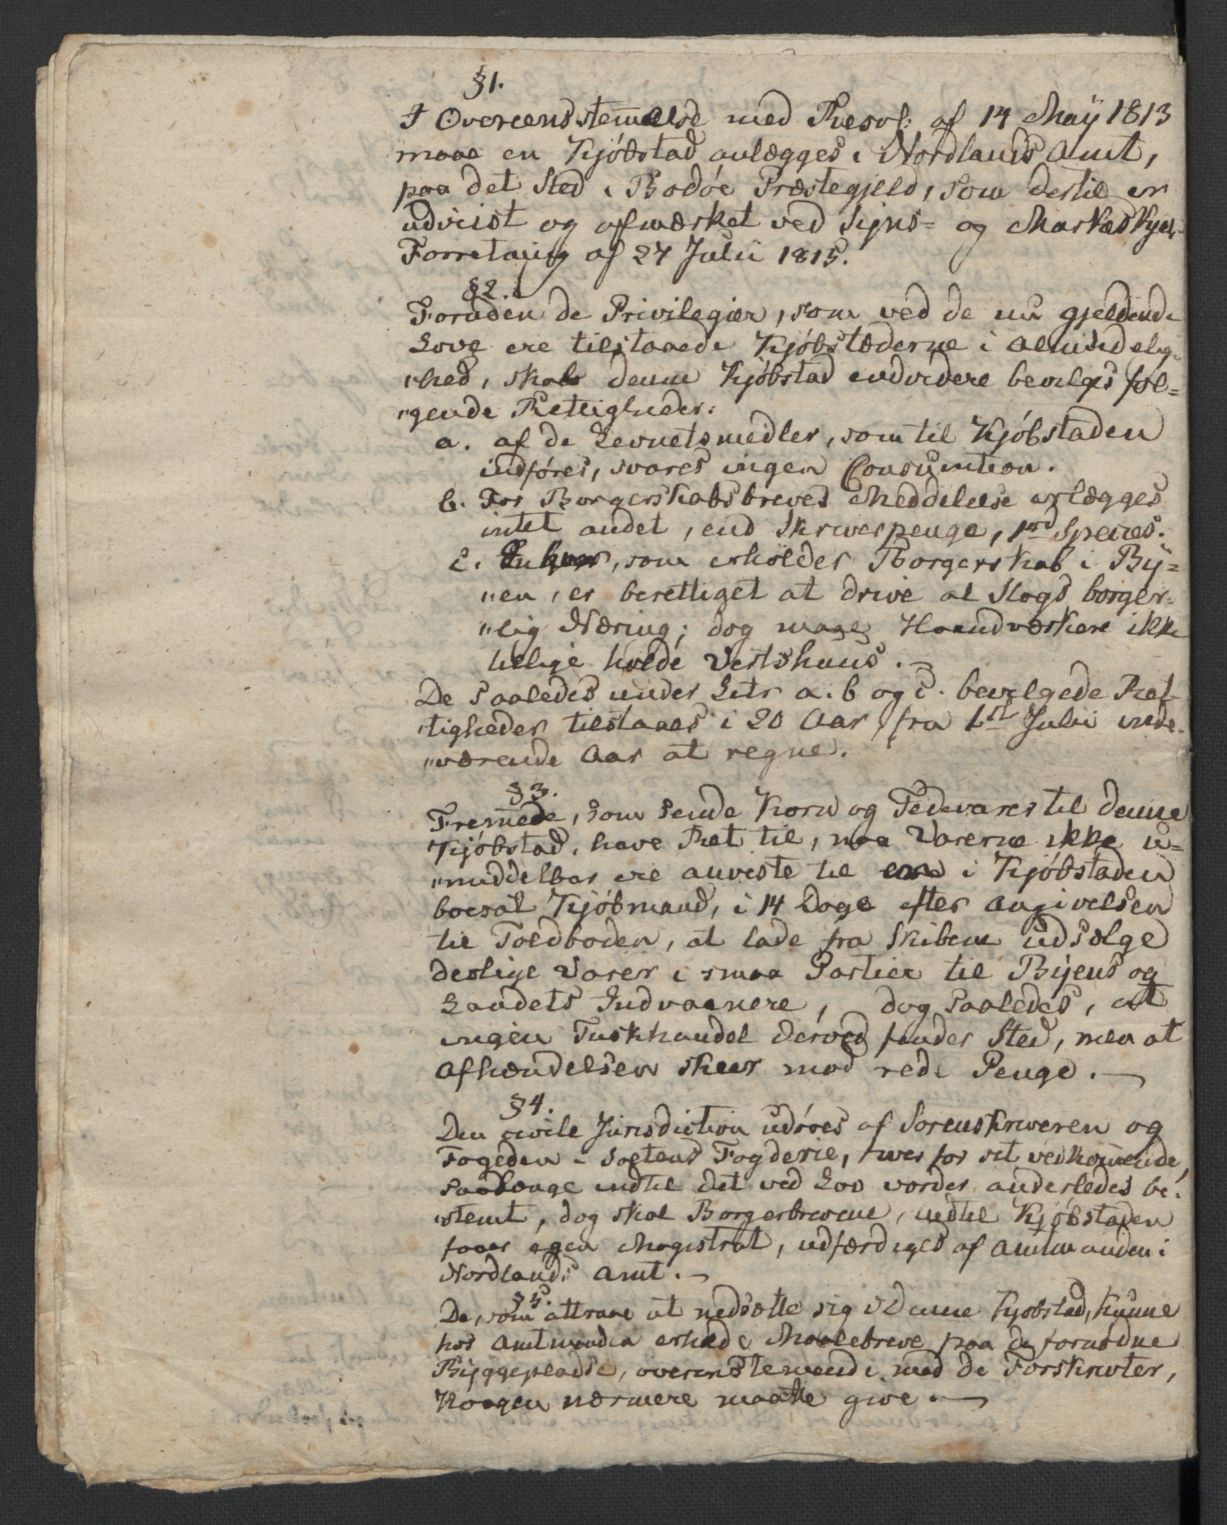 §1.
I Overeensstemmelse med Resol: af 14 Maÿ 1813
maae en Kjöbstad anlægges i Nordlands Amt,
paa det Sted i Bodöe Præstegjeld, som dertil er
udviist og afmærket ved Syns- og Markæskjels-
Forretning af 27 Julii 1815.
§2.
Foruden de Privilegier, som ved de nu gjeldende
Love ere tilstaaede Kjöbstæderne i Almindelig-
"hed, skal denne Kjöbstad endvidere bevilges föl-
"gende Rettigheder:
a. af de Levnetsmedler, som til Kjöbstaden
indföres, svares ingen Consumtion.
b. For Borgerskabsbrevets Meddelelse erlægges
intet andet, end Skriverpenge, 1 rd Species.
c. Enhver, som erholder Borgerskab i Bÿ-
"en, er berettiget at drive al Slags borger-
"lig Næring; dog maae Haandværkere ikke
tillige holde Vertshuus.
De saaledes under Litr a. b og c. bevilgede Ret-
"tigheder tilstaaes i 20 Aar, fra 1ste Julii inde-
"værende Aar at regne.
§3.
Fremede, som sende Korn og Fedevarer til denne
Kjöbstad, have Ret til, naar Varerne ikke u-
"middelbar ere anviste til en i Kjöbstaden
boesat Kjöbmand, i 14 Dage efter Angivelsen
til Toldboden, at lade fra Skibene udsælge
deslige Varer i smaa Partier til Bÿens og
Landets Indvaanere, dog saaledes, at
ingen Tuskhandel derved finder Sted, men at
Afhændelsen skeer mod rede Penge.
§4.
Den civile Jurisdiction udöves af Sorenskriveren og
Fogeden i Saltens Fogderie, hver for sit vedkommende,
saalænge indtil det ved Lov vorder anderledes be-
"stemt, dog skal Borgerbrevene, indtil Kjöbstaden
faaer egen Magistrat, udfærdiges af Amtmanden i
Nordlands Amt.
§5.
De, som attraae at nedsætte sig i denne Kjöbstad, kunne
hos Amtmanden erholde Maalebreve paa de fornödne
Byggepladse, overensstemmende med de Forskrivter,
Kongen nærmere maatte give.